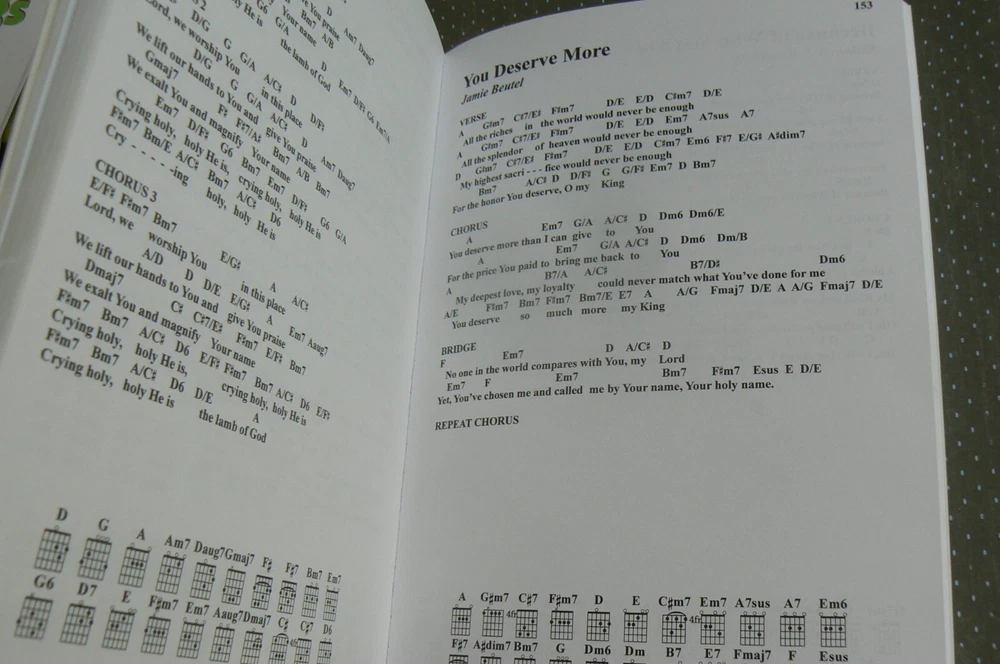 D
D/G G G/A A/C♯ D
Lord, we worship You in this place
D/G G G/A A/C♯ D/F♯
We lift our hands to You and give You praise
Gmaj7 F♯ F♯7/A♯ Bm7 Am7 Daug7
We exalt You and magnify Your name
Em7 D/F♯ G6 Bm7 A/B Bm7
Crying holy, holy He is, crying holy, holy He is
F♯m7 Bm/E A/C♯ Bm7 A/C♯ D6
Cry - - - - -ing holy, holy He is
the lamb of God
CHORUS 3
E/F♯ F♯m7 Bm7 E/G♯ A A/C♯
Lord, we worship You in this place
A/D D D/E E/G♯ A Em7 Aaug7
We lift our hands to You and give You praise
Dmaj7 C♯ C♯7/E♯ F♯m7 E/F♯ Bm7
We exalt You and magnify Your name
F♯m7 Bm7 A/C♯ D6 E/F♯ F♯m7 Bm7 A/C♯ D6 E/F♯
Crying holy, holy He is, crying holy, holy He is
F♯m7 Bm7 A/C♯ D6 D/E A
Crying holy, holy He is the lamb of God
D G A Am7 Daug7 Gmaj7 F♯ F♯7 Bm7 Em7
G6 D7 E F♯m7 Em7 Aaug7 Dmaj7 C♯ C♯7 D6
4fr
153
You Deserve More
Jamie Beutel
VERSE
A G♯m7 C♯7/E♯ F♯m7 D/E E/D C♯m7 D/E
All the riches in the world would never be enough
A G♯m7 C♯7/E♯ F♯m7 D/E E/D Em7 A7sus A7
All the splendor of heaven would never be enough
D G♯m7 C♯7/E♯ F♯m7 D/E E/D C♯m7 Em6 F♯7 E/G♯ A♯dim7
My highest sacri - - - fice would never be enough
Bm7 A/C♯ D D/F♯ G G/F♯ Em7 D Bm7
For the honor You deserve, O my King
CHORUS
A Em7 G/A A/C♯ D Dm6 Dm6/E
You deserve more than I can give to You
A Em7 G/A A/C♯ D Dm6 Dm/B
For the price You paid to bring me back to You
A B7/A A/C♯ B7/D♯ Dm6
My deepest love, my loyalty could never match what You've done for me
A/E F♯m7 Bm7 F♯m7 Bm7/E E7 A A/G Fmaj7 D/E A A/G Fmaj7 D/E
You deserve so much more my King
BRIDGE
F Em7 D A/C♯ D
No one in the world compares with You, my Lord
Em7 F Em7 Bm7 F♯m7 Esus E D/E
Yet, You've chosen me and called me by Your name, Your holy name.
REPEAT CHORUS
A G♯m7 C♯7 F♯m7 D E C♯m7 Em7 A7sus A7 Em6
4fr 4fr
F♯7 A♯dim7 Bm7 G Dm6 Dm B7 E7 Fmaj7 F Esus